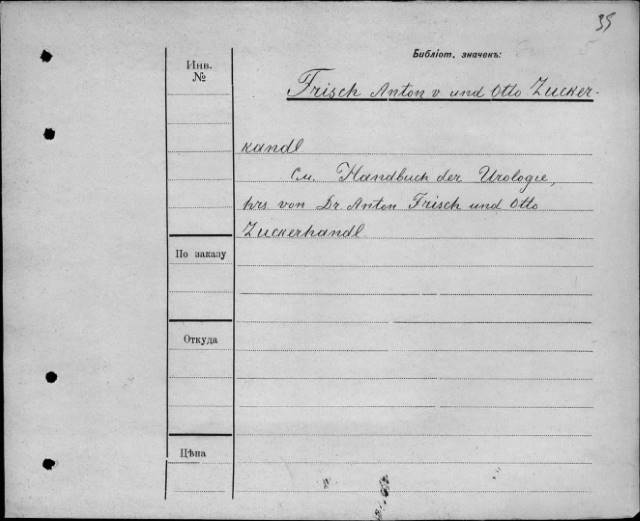 35
Библіот. значекъ:
Инв.
№
Frisch Anton v und Otto Zucker-
kandl
См. Handbuch der Urologie,
hrs von Dr Anton Frisch und Otto
Zuckerhandl
По заказу
Откуда
Цѣна